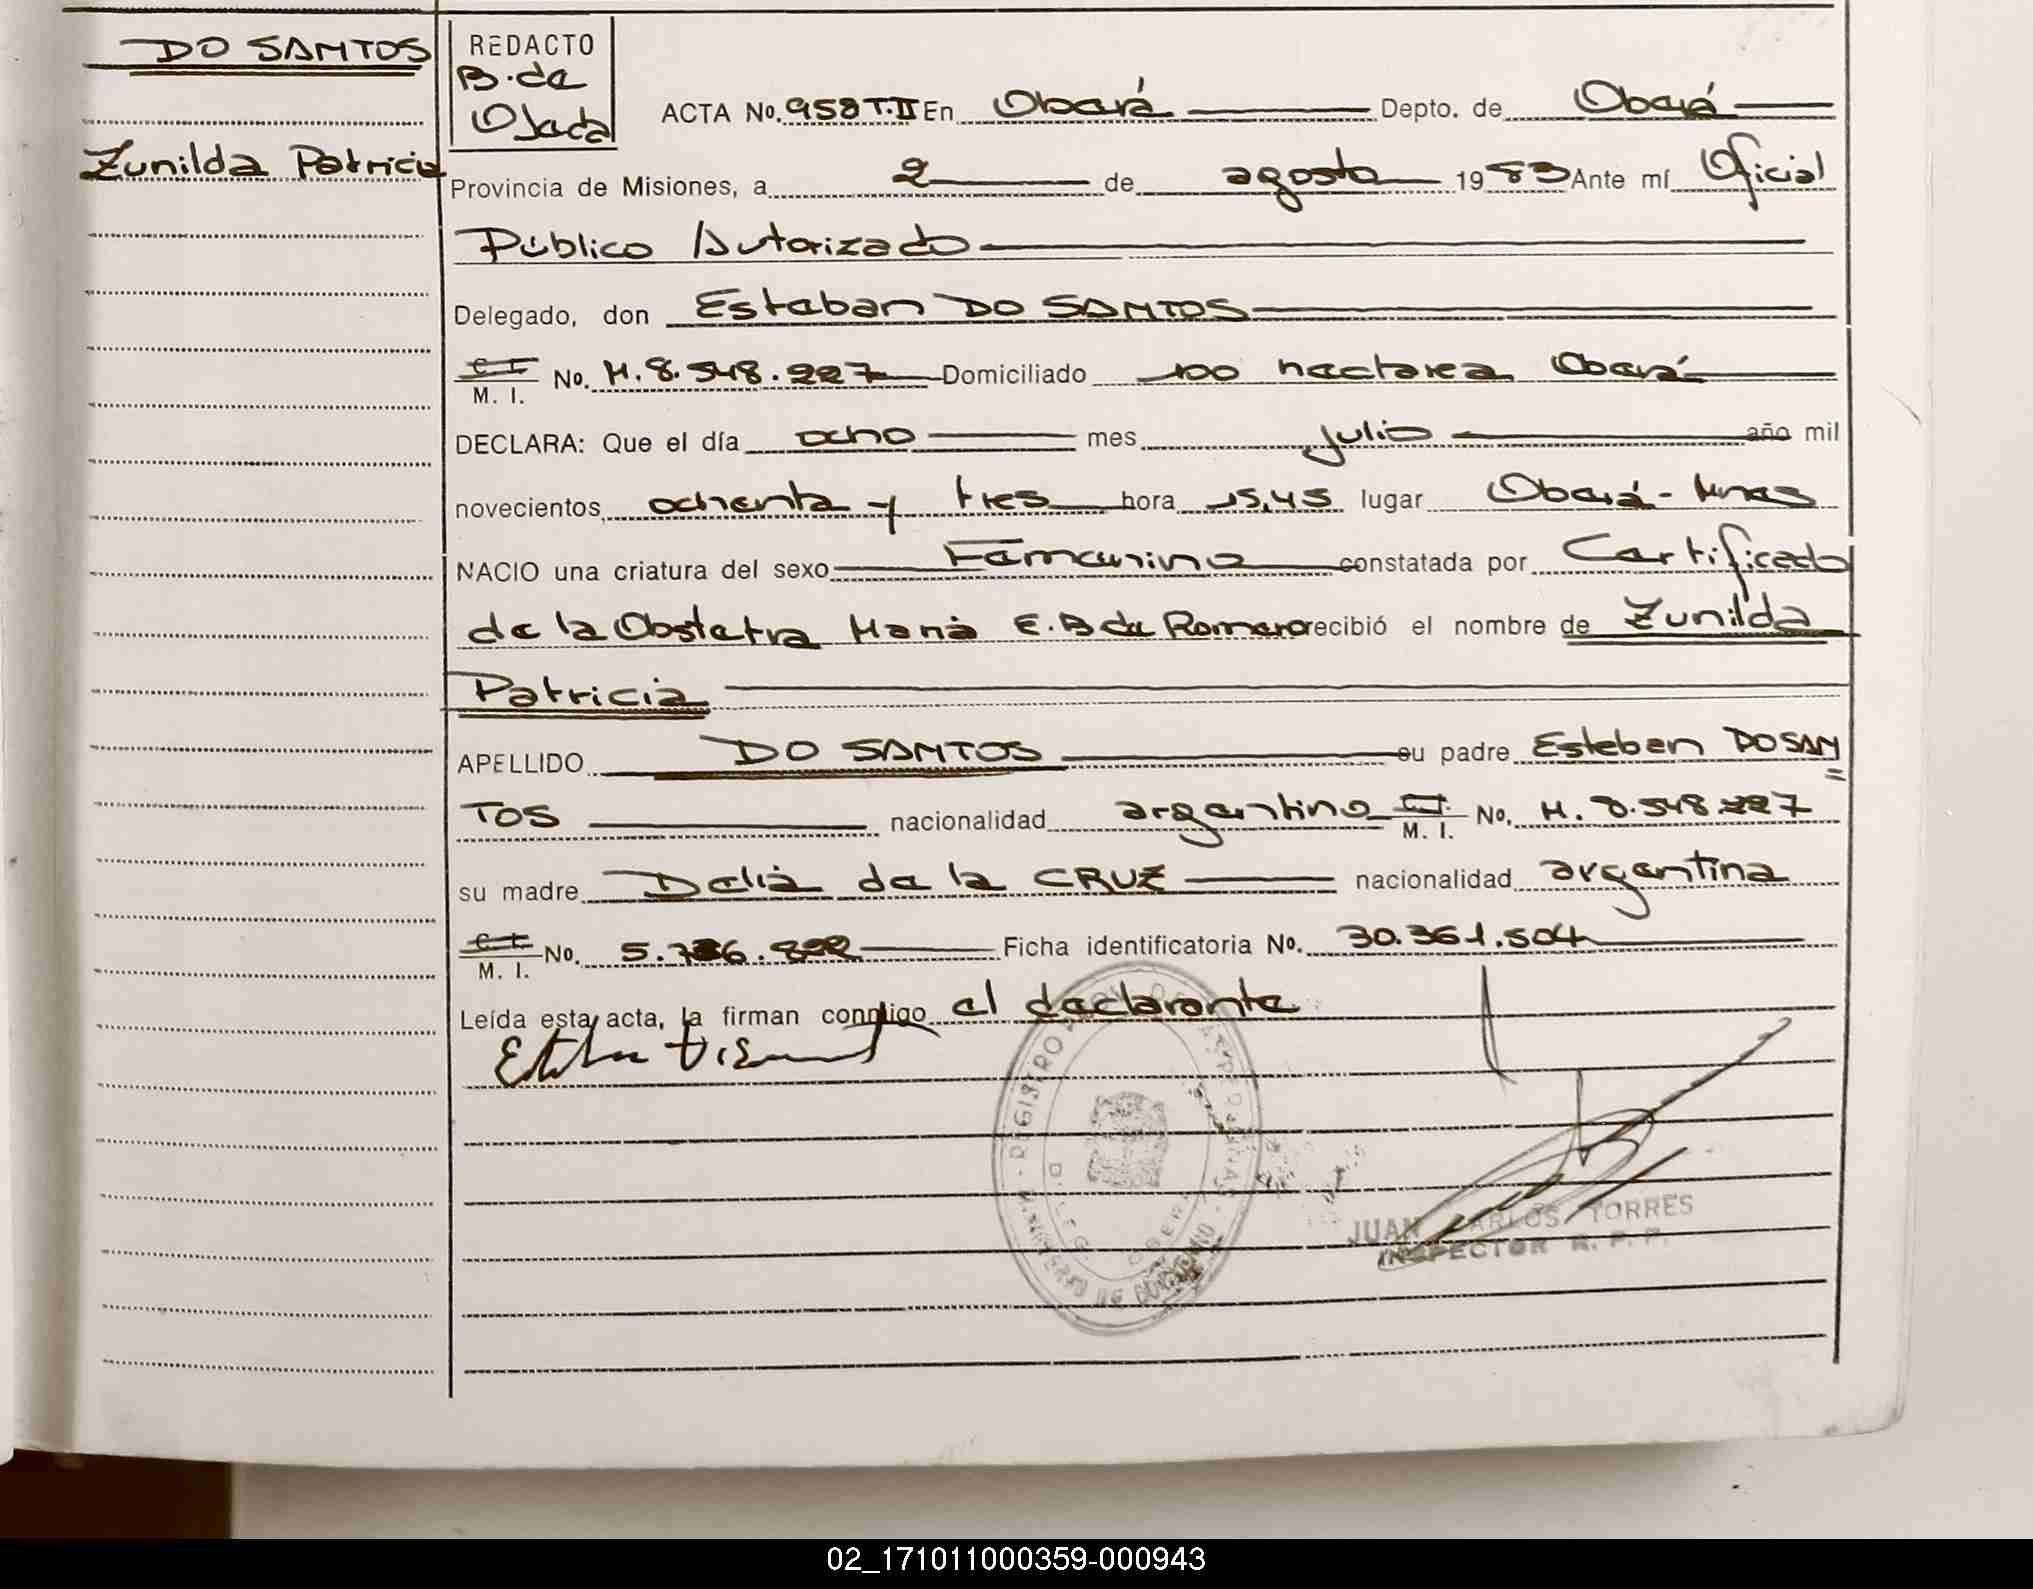 DO SANTOS
Zunilda Patricia
REDACTO
B. de
Ojeda
ACTA No. 958 T.II En Oberá Depto. de Oberá
Provincia de Misiones, a 2 de agosto 1983 Ante mí Oficial
Público Autorizado
Delegado, don Esteban DO SANTOS
C. I. / M. I. No. M. 8.548.227 Domiciliado 100 hectarea Oberá
DECLARA: Que el día ocho mes julio año mil
novecientos, ochenta y tres hora 15,45 lugar Oberá - Mnes
NACIO una criatura del sexo Femenino constatada por Certificado
de la Obstetra María E. B de Romero recibió el nombre de Zunilda
Patricia
APELLIDO DO SANTOS su padre Esteban DO SAN
TOS nacionalidad argentino C. I. / M. I. No. M. 8.548.227
su madre Delia de la CRUZ nacionalidad argentina
C. I. / M. I. No. Ficha identificatoria No. 30.361.504
Leída esta acta, la firman conmigo el declarante
REGISTRO DE LAS PERSONAS
MINISTERIO DE GOBIERNO
DELEG OBERA
JUAN CARLOS TORRES
INSPECTOR R. P. P.
02_171011000359-000943